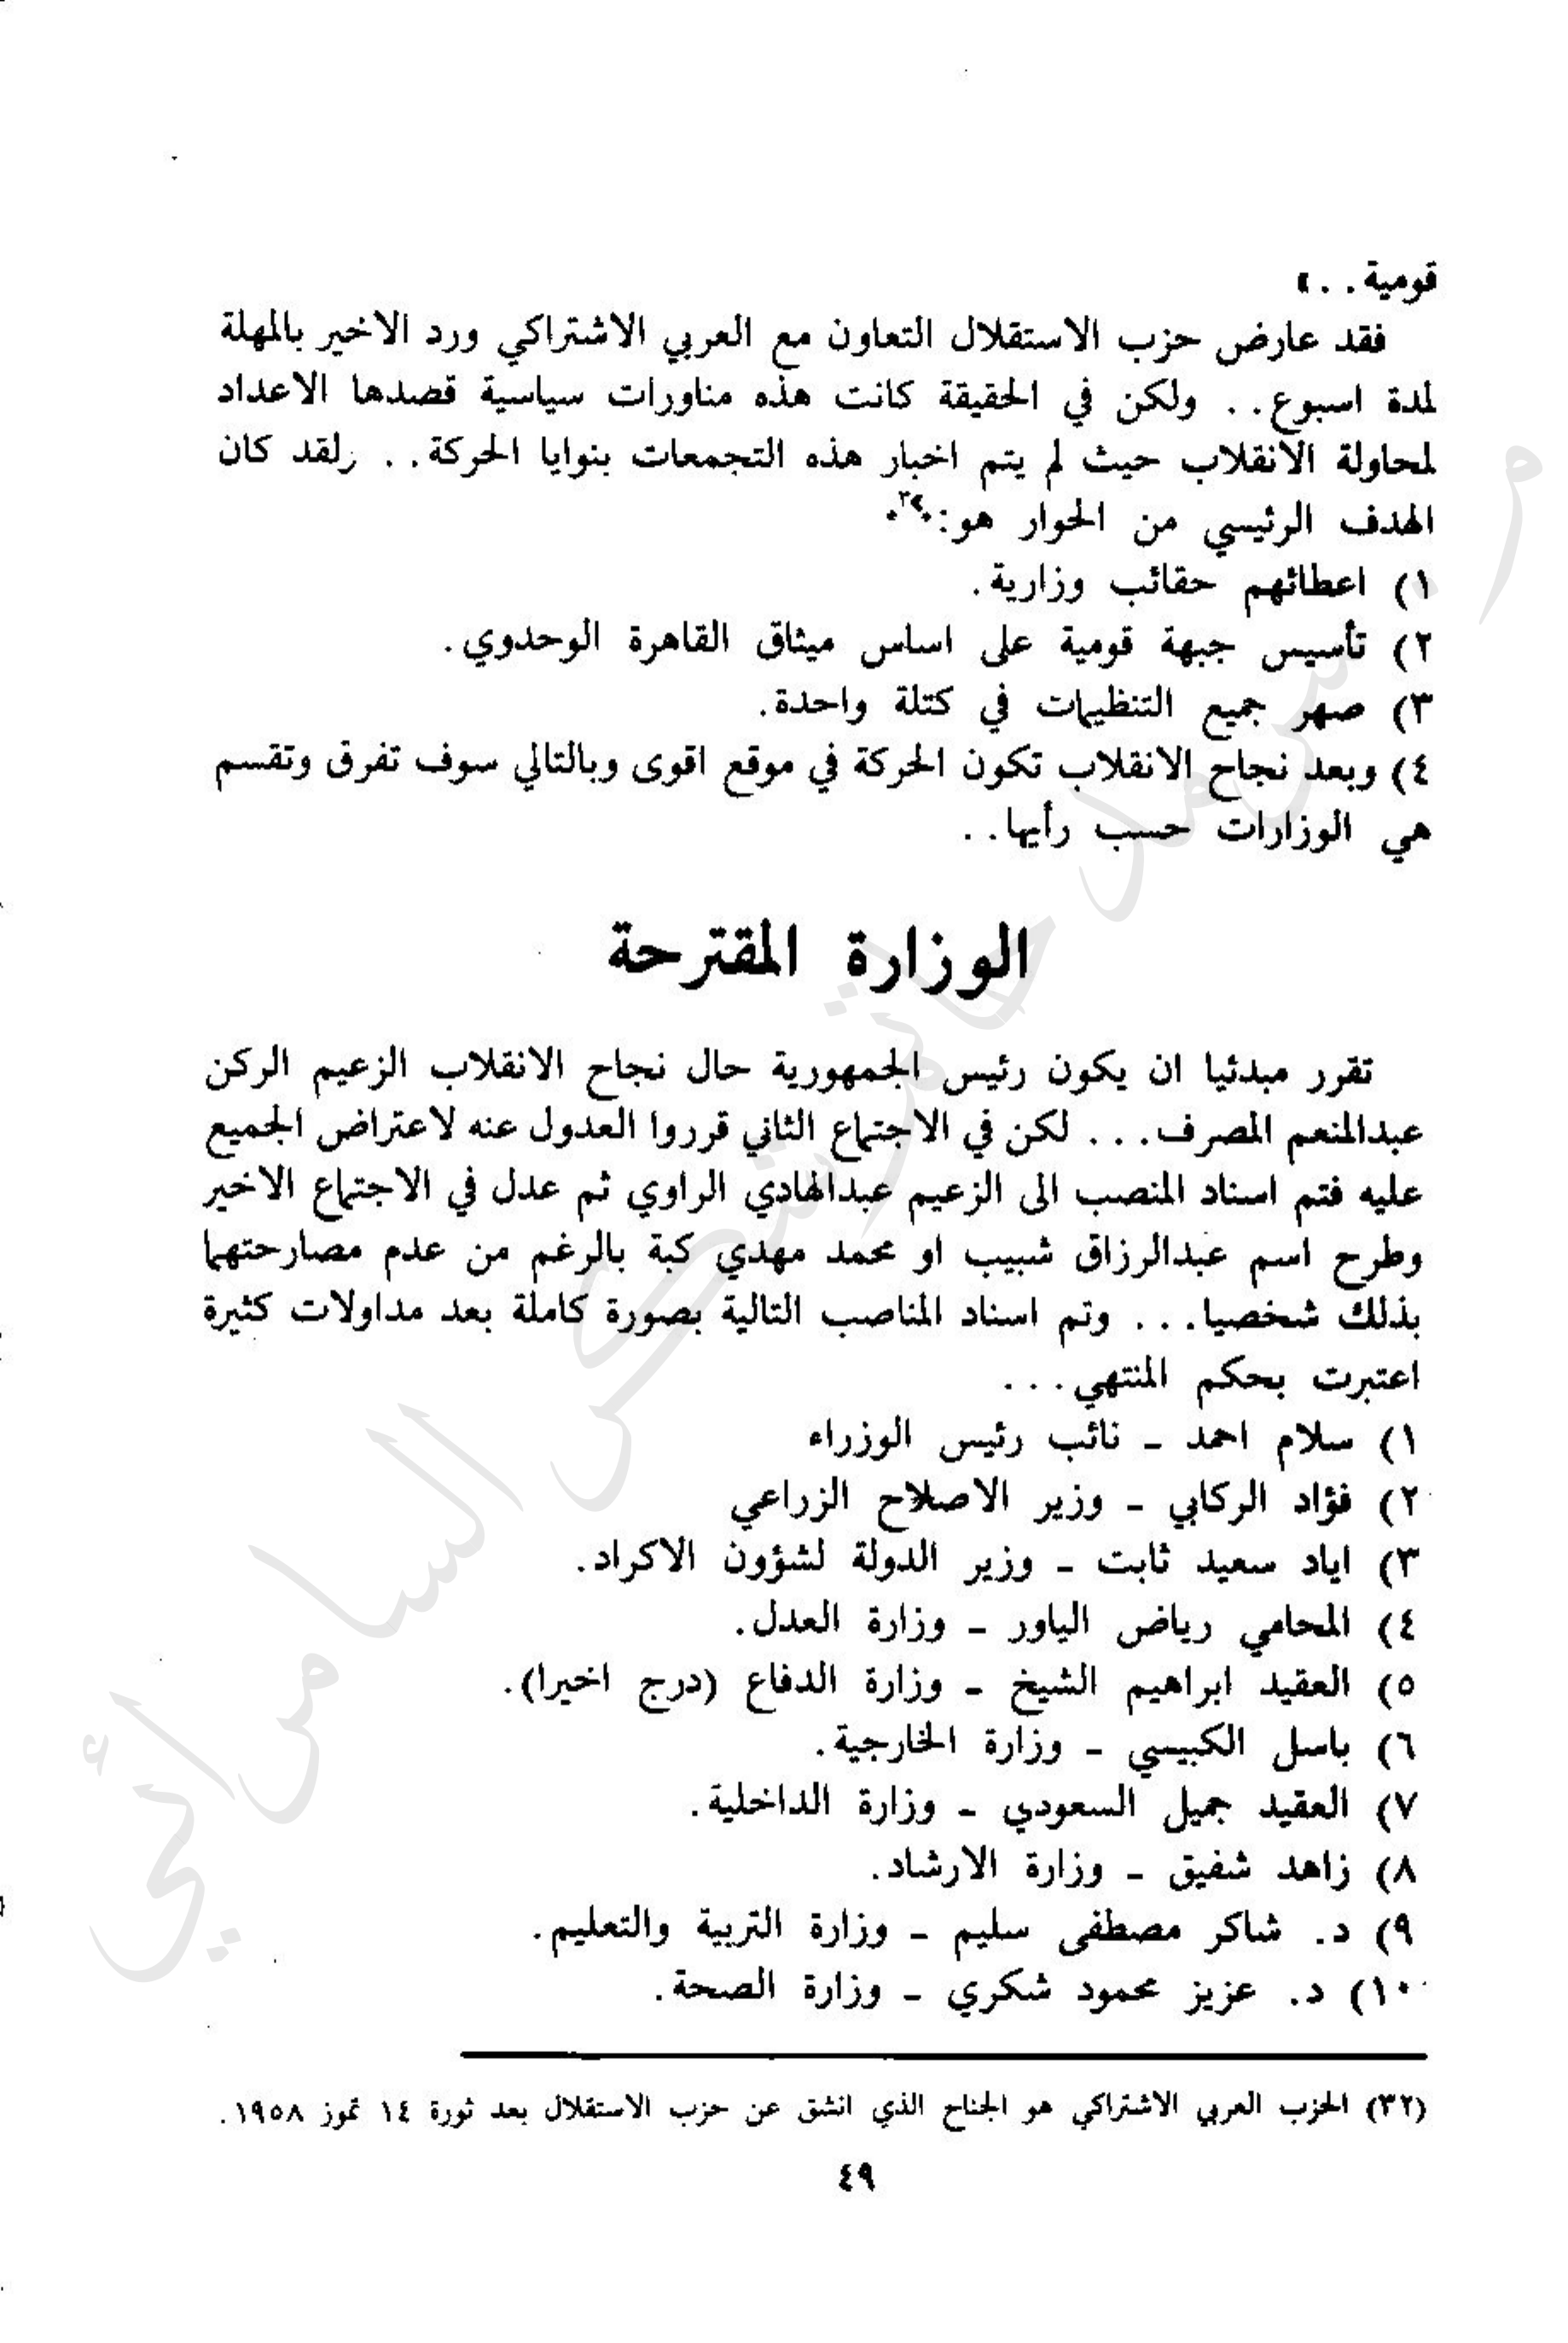 قومية..»
فقد عارض حزب الاستقلال التعاون مع العربي الاشتراكي ورد الاخير بالمهلة
لمدة اسبوع.. ولكن في الحقيقة كانت هذه مناورات سياسية قصدها الاعداد
لمحاولة الانقلاب حيث لم يتم اخبار هذه التجمعات بنوايا الحركة.. ولقد كان
الهدف الرئيسي من الحوار هو:
١) اعطائهم حقائب وزارية.
٢) تأسيس جبهة قومية على اساس ميثاق القاهرة الوحدوي.
٣) صهر جميع التنظيمات في كتلة واحدة.
٤) وبعد نجاح الانقلاب تكون الحركة في موقع اقوى وبالتالي سوف تفرق وتقسم
هي الوزارات حسب رأيها..
الوزارة المقترحة
تقرر مبدئيا ان يكون رئيس الجمهورية حال نجاح الانقلاب الزعيم الركن
عبدالمنعم المصرف... لكن في الاجتماع الثاني قرروا العدول عنه لاعتراض الجميع
عليه فتم اسناد المنصب الى الزعيم عبدالهادي الراوي ثم عدل في الاجتماع الاخير
وطرح اسم عبدالرزاق شبيب او محمد مهدي كبة بالرغم من عدم مصارحتهما
بذلك شخصيا... وتم اسناد المناصب التالية بصورة كاملة بعد مداولات كثيرة
اعتبرت بحكم المنتهي...
١) سلام احمد ـ نائب رئيس الوزراء
٢) فؤاد الركابي ـ وزير الاصلاح الزراعي
٣) اياد سعيد ثابت ـ وزير الدولة لشؤون الاكراد.
٤) المحامي رياض الياور ـ وزارة العدل.
٥) العقيد ابراهيم الشيخ ـ وزارة الدفاع (درج اخيرا).
٦) باسل الكبيسي ـ وزارة الخارجية.
٧) العقيد جميل السعودي ـ وزارة الداخلية.
٨) زاهد شفيق ـ وزارة الارشاد.
٩) د. شاكر مصطفى سليم ـ وزارة التربية والتعليم.
١٠) د. عزيز محمود شكري ـ وزارة الصحة.
(٣٢) الحزب العربي الاشتراكي هو الجناح الذي انشق عن حزب الاستقلال بعد ثورة ١٤ تموز ١٩٥٨.
٤٩